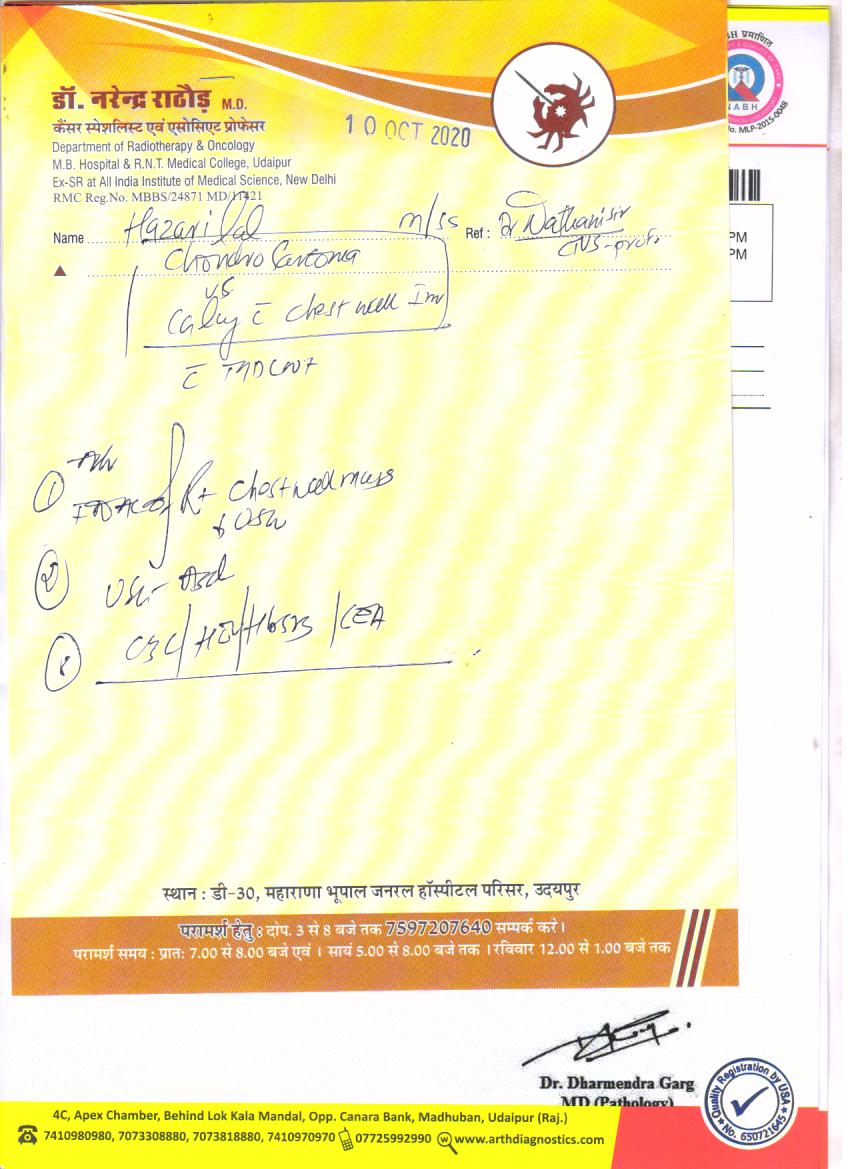 डॉ. नरेन्द्र राठौड़ M.D.
कैंसर स्पेशलिस्ट एवं एसोसिएट प्रोफेसर
Department of Radiotherapy & Oncology
M.B. Hospital & R.N.T. Medical College, Udaipur
Ex-SR at All India Institute of Medical Science, New Delhi
RMC Reg.No. MBBS/24871 MD/17421
10 OCT 2020
No. MLP-2015-0048
NABH
PM
PM
Name Hazari lal m/55 Ref : Dr Nathani sir
Chondro Sarcoma
vs
c chest wall
①
chest wall mass
②
USG
CBC / HCV / HbsAg / CEA
स्थान : डी-30, महाराणा भूपाल जनरल हॉस्पीटल परिसर, उदयपुर
परामर्श हेतु : दोप. 3 से 8 बजे तक 7597207640 सम्पर्क करे।
परामर्श समय : प्रात: 7.00 से 8.00 बजे एवं । सायं 5.00 से 8.00 बजे तक । रविवार 12.00 से 1.00 बजे तक
Dr. Dharmendra Garg
MD (Pathology)
Quality Registration by USA
No. 650721645
4C, Apex Chamber, Behind Lok Kala Mandal, Opp. Canara Bank, Madhuban, Udaipur (Raj.)
7410980980, 7073308880, 7073818880, 7410970970 07725992990 www.arthdiagnostics.com